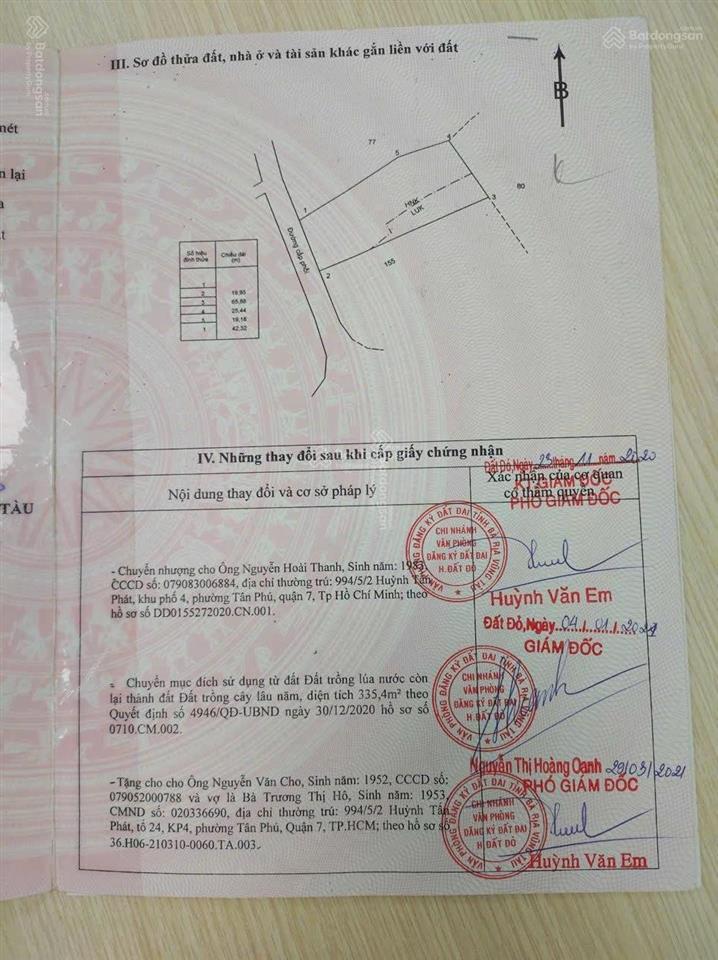 Batdongsan
by PropertyGuru
III. Sơ đồ thửa đất, nhà ở và tài sản khác gắn liền với đất
nét
n lại
a
t
TÀU
B
77
80
155
1
2
3
4
5
HNK
LUK
1
Đường cấp phối
Số hiệu đỉnh thửa
Chiều dài (m)
1
2 19,95
3 65,88
4 25,44
5 19,18
1 42,32
IV. Những thay đổi sau khi cấp giấy chứng nhận
Nội dung thay đổi và cơ sở pháp lý
Xác nhận của cơ quan
có thẩm quyền
Đất Đỏ, Ngày 23 tháng 11 năm 2020
KT GIÁM ĐỐC
PHÓ GIÁM ĐỐC
- Chuyển nhượng cho Ông Nguyễn Hoài Thanh, Sinh năm: 1983,
CCCD số: 079083006884, địa chỉ thường trú: 994/5/2 Huỳnh Tấn
Phát, khu phố 4, phường Tân Phú, quận 7, Tp Hồ Chí Minh; theo
hồ sơ số DD0155272020.CN.001.
VĂN PHÒNG ĐĂNG KÝ ĐẤT ĐAI TỈNH BÀ RỊA VŨNG TÀU
CHI NHÁNH
VĂN PHÒNG
ĐĂNG KÝ ĐẤT ĐAI
H. ĐẤT ĐỎ
Huỳnh Văn Em
Đất Đỏ, Ngày 04 / 01 / 2021
GIÁM ĐỐC
- Chuyển mục đích sử dụng từ đất Đất trồng lúa nước còn
lại thành đất Đất trồng cây lâu năm, diện tích 335,4m² theo
Quyết định số 4946/QĐ-UBND ngày 30/12/2020 hồ sơ số
0710.CM.002.
VĂN PHÒNG ĐĂNG KÝ ĐẤT ĐAI TỈNH BÀ RỊA VŨNG TÀU
CHI NHÁNH
VĂN PHÒNG
ĐĂNG KÝ ĐẤT ĐAI
H. ĐẤT ĐỎ
Nguyễn Thị Hoàng Oanh 29/03/2021
PHÓ GIÁM ĐỐC
- Tặng cho cho Ông Nguyễn Văn Cho, Sinh năm: 1952, CCCD số:
079052000788 và vợ là Bà Trương Thị Hô, Sinh năm: 1953,
CMND số: 020336690, địa chỉ thường trú: 994/5/2 Huỳnh Tấn
Phát, tổ 24, KP4, phường Tân Phú, Quận 7, TP.HCM; theo hồ sơ số
36.H06-210310-0060.TA.003.
VĂN PHÒNG ĐĂNG KÝ ĐẤT ĐAI TỈNH BÀ RỊA VŨNG TÀU
CHI NHÁNH
VĂN PHÒNG
ĐĂNG KÝ ĐẤT ĐAI
H. ĐẤT ĐỎ
Huỳnh Văn Em